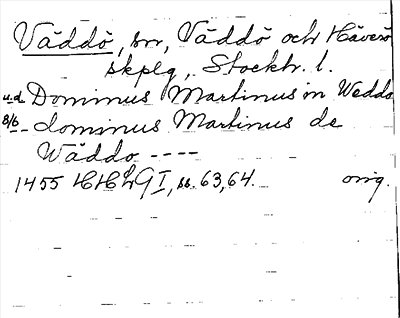 Väddö, sn, Väddö och Häverö
skplg, Stockh. l.
u.d. Dominus Martinus in Weddo
8/6 - dominus Martinus de
Wäddo ----
1455 HHLG I, ss. 63, 64. orig.